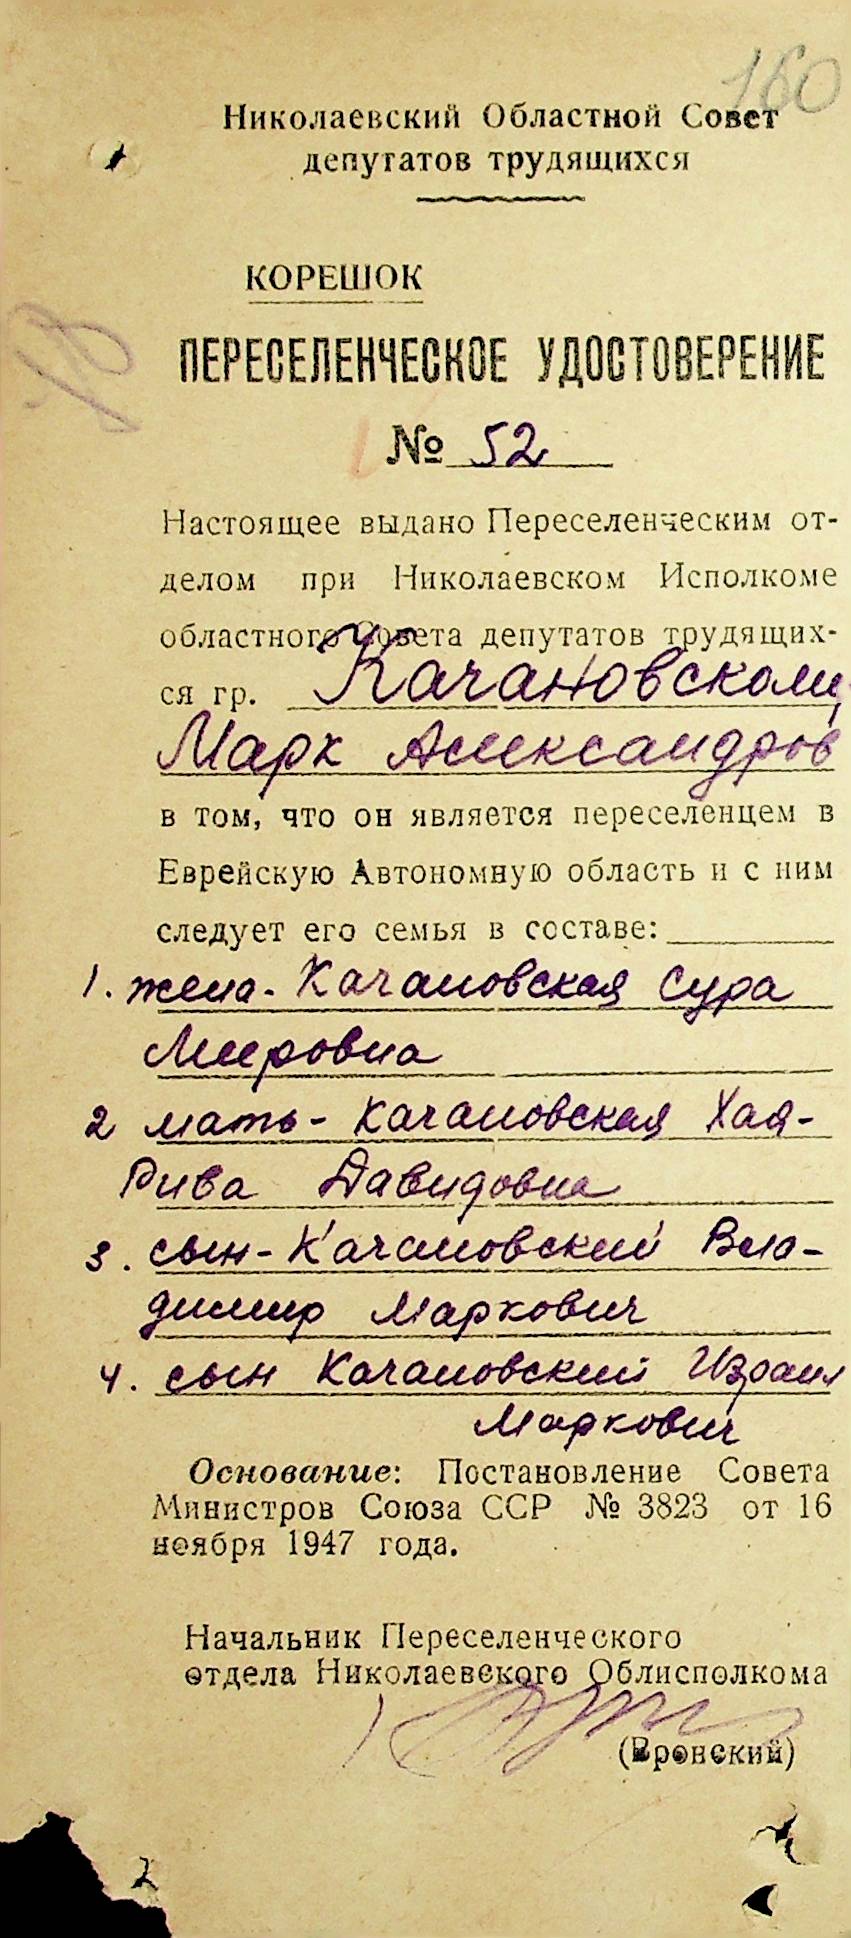 160
Николаевский Областной Совет
депутатов трудящихся
КОРЕШОК
ПЕРЕСЕЛЕНЧЕСКОЕ УДОСТОВЕРЕНИЕ
№ 52
Настоящее выдано Переселенческим от-
делом при Николаевском Исполкоме
областного Совета депутатов трудящих-
ся гр. Качановскому
Марк Александров
в том, что он является переселенцем в
Еврейскую Автономную область и с ним
следует его семья в составе:
1. жена - Качановская Сура
Мееровна
2 мать - Качановская Хая-
Рива Давидовна
3. сын - Качановский Вла-
димир Маркович
4. сын Качановский Израил
Маркович
Основание: Постановление Совета
Министров Союза ССР № 3823 от 16
ноября 1947 года.
Начальник Переселенческого
отдела Николаевского Облисполкома
(Вронский)